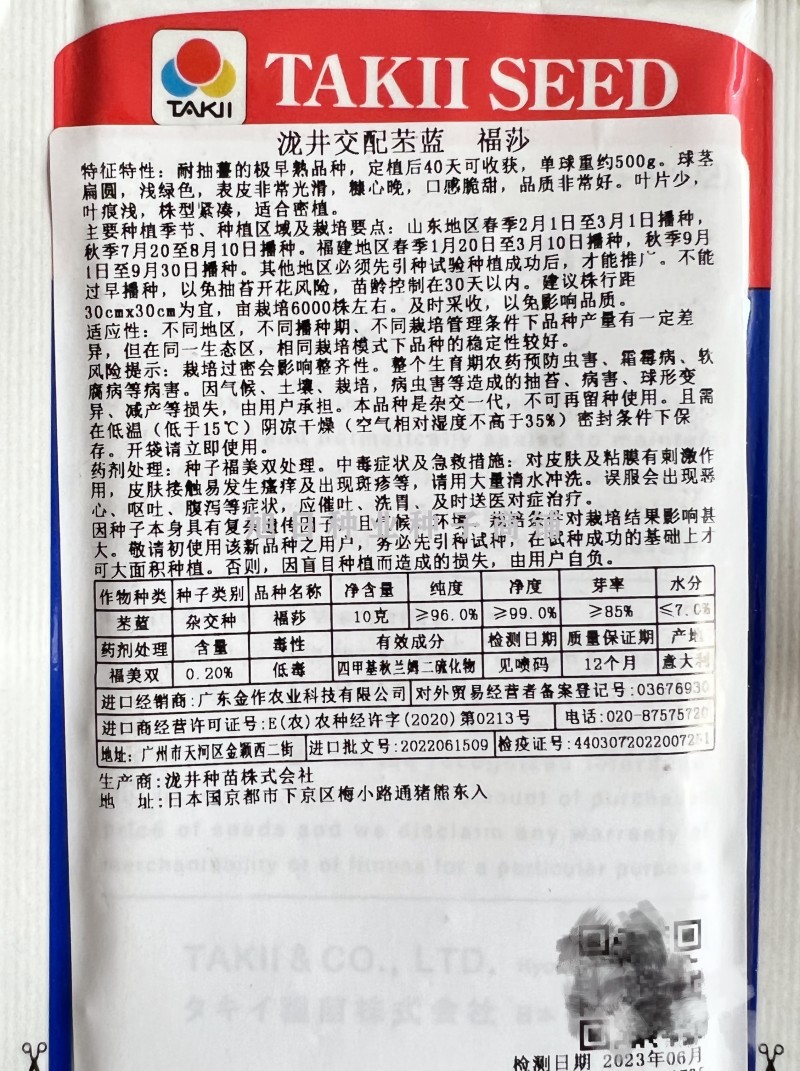 TAKII
TAKII SEED
泷井交配苤蓝 福莎
特征特性：耐抽薹的极早熟品种，定植后40天可收获，单球重约500g。球茎
扁圆，浅绿色，表皮非常光滑，糠心晚，口感脆甜，品质非常好。叶片少，
叶痕浅，株型紧凑，适合密植。
主要种植季节、种植区域及栽培要点：山东地区春季2月1日至3月1日播种，
秋季7月20至8月10日播种。福建地区春季1月20日至3月10日播种，秋季9月
1日至9月30日播种。其他地区必须先引种试验种植成功后，才能推广。不能
过早播种，以免抽苔开花风险，苗龄控制在30天以内。建议株行距
30cmx30cm为宜，亩栽培6000株左右。及时采收，以免影响品质。
适应性：不同地区，不同播种期、不同栽培管理条件下品种产量有一定差
异，但在同一生态区，相同栽培模式下品种的稳定性较好。
风险提示：栽培过密会影响整齐性。整个生育期农药预防虫害、霜霉病、软
腐病等病害。因气候、土壤、栽培，病虫害等造成的抽苔、病害、球形变
异、减产等损失，由用户承担。本品种是杂交一代，不可再留种使用。且需
在低温（低于15℃）阴凉干燥（空气相对湿度不高于35%）密封条件下保
存。开袋请立即使用。
药剂处理：种子福美双处理。中毒症状及急救措施：对皮肤及粘膜有刺激作
用，皮肤接触易发生瘙痒及出现斑疹等，请用大量清水冲洗。误服会出现恶
心、呕吐、腹泻等症状，应催吐、洗胃、及时送医对症治疗。
因种子本身具有复杂遗传因子，且气候、环境、栽培条件对栽培结果影响甚
大。敬请初使用该新品种之用户，务必先引种试种，在试种成功的基础上才
可大面积种植。否则，因盲目种植而造成的损失，由用户自负。
作物种类 种子类别 品种名称 净含量 纯度 净度 芽率 水分
苤蓝 杂交种 福莎 10克 ≥96.0% ≥99.0% ≥85% ≤7.0%
药剂处理 含量 毒性 有效成分 检测日期 质量保证期 产地
福美双 0.20% 低毒 四甲基秋兰姆二硫化物 见喷码 12个月 意大利
进口经销商：广东金作农业科技有限公司 对外贸易经营者备案登记号：03676930
进口商经营许可证号：E(农)农种经许字(2020)第0213号 电话：020-87575720
地址：广州市天河区金颖西二街 进口批文号：2022061509 检疫证号：4403072022007251
生产商：泷井种苗株式会社
地 址：日本国京都市下京区梅小路通猪熊东入
price of seeds and we disclaim any warranty of
merchantability or of fitness for a particular purpose.
TAKII & CO., LTD.
タキイ種苗株式会社
检测日期 2023年06月